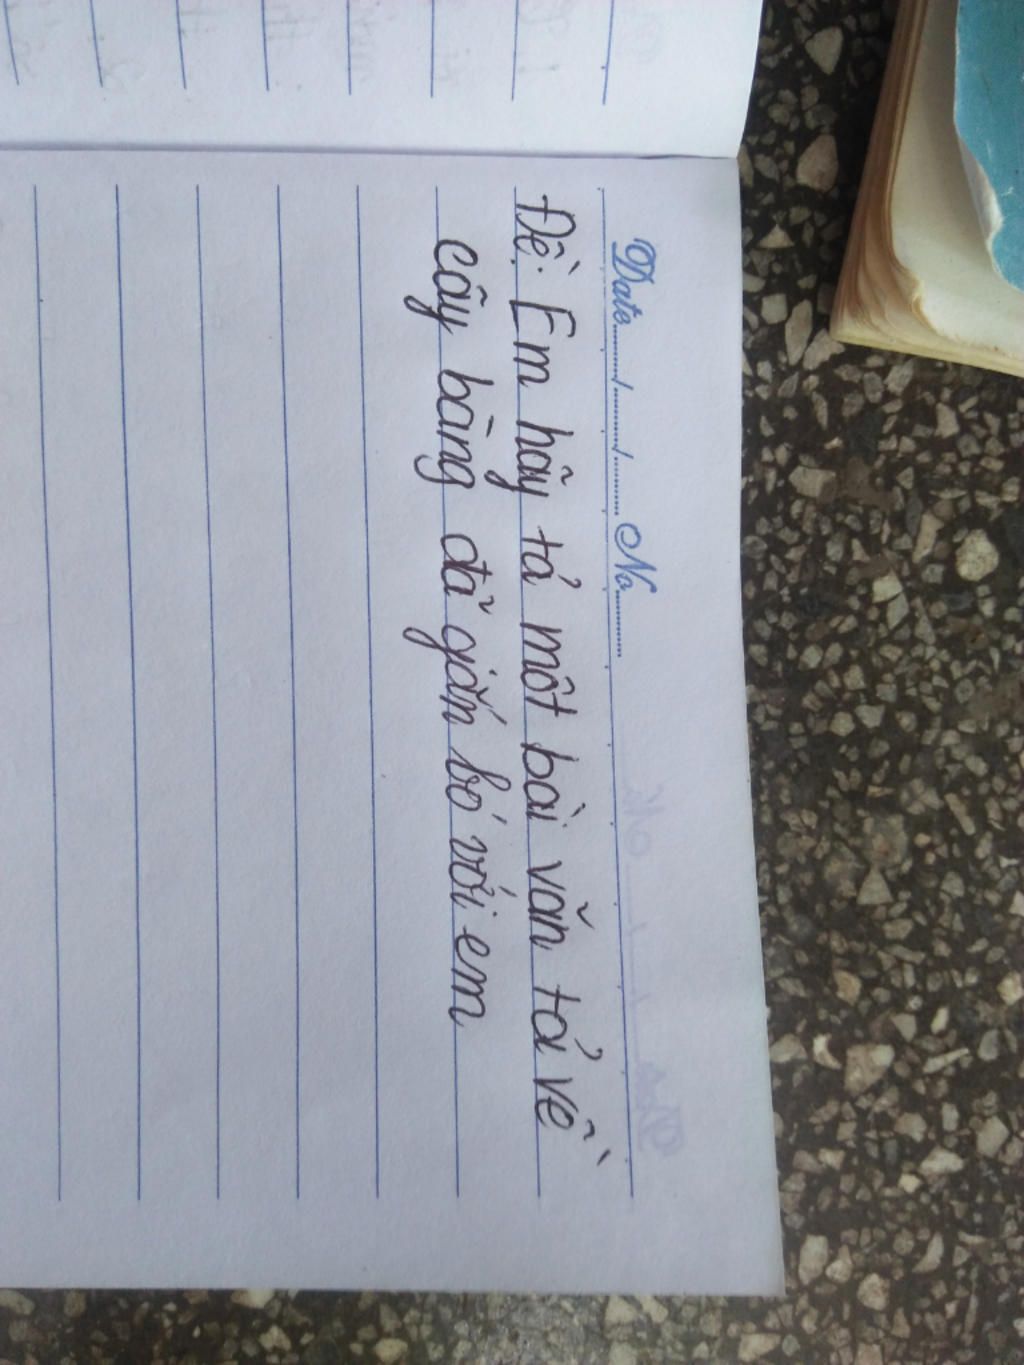 Date......./......./....... No..........
Đề: Em hãy tả một bài văn tả về
cây bàng đã gắn bó với em